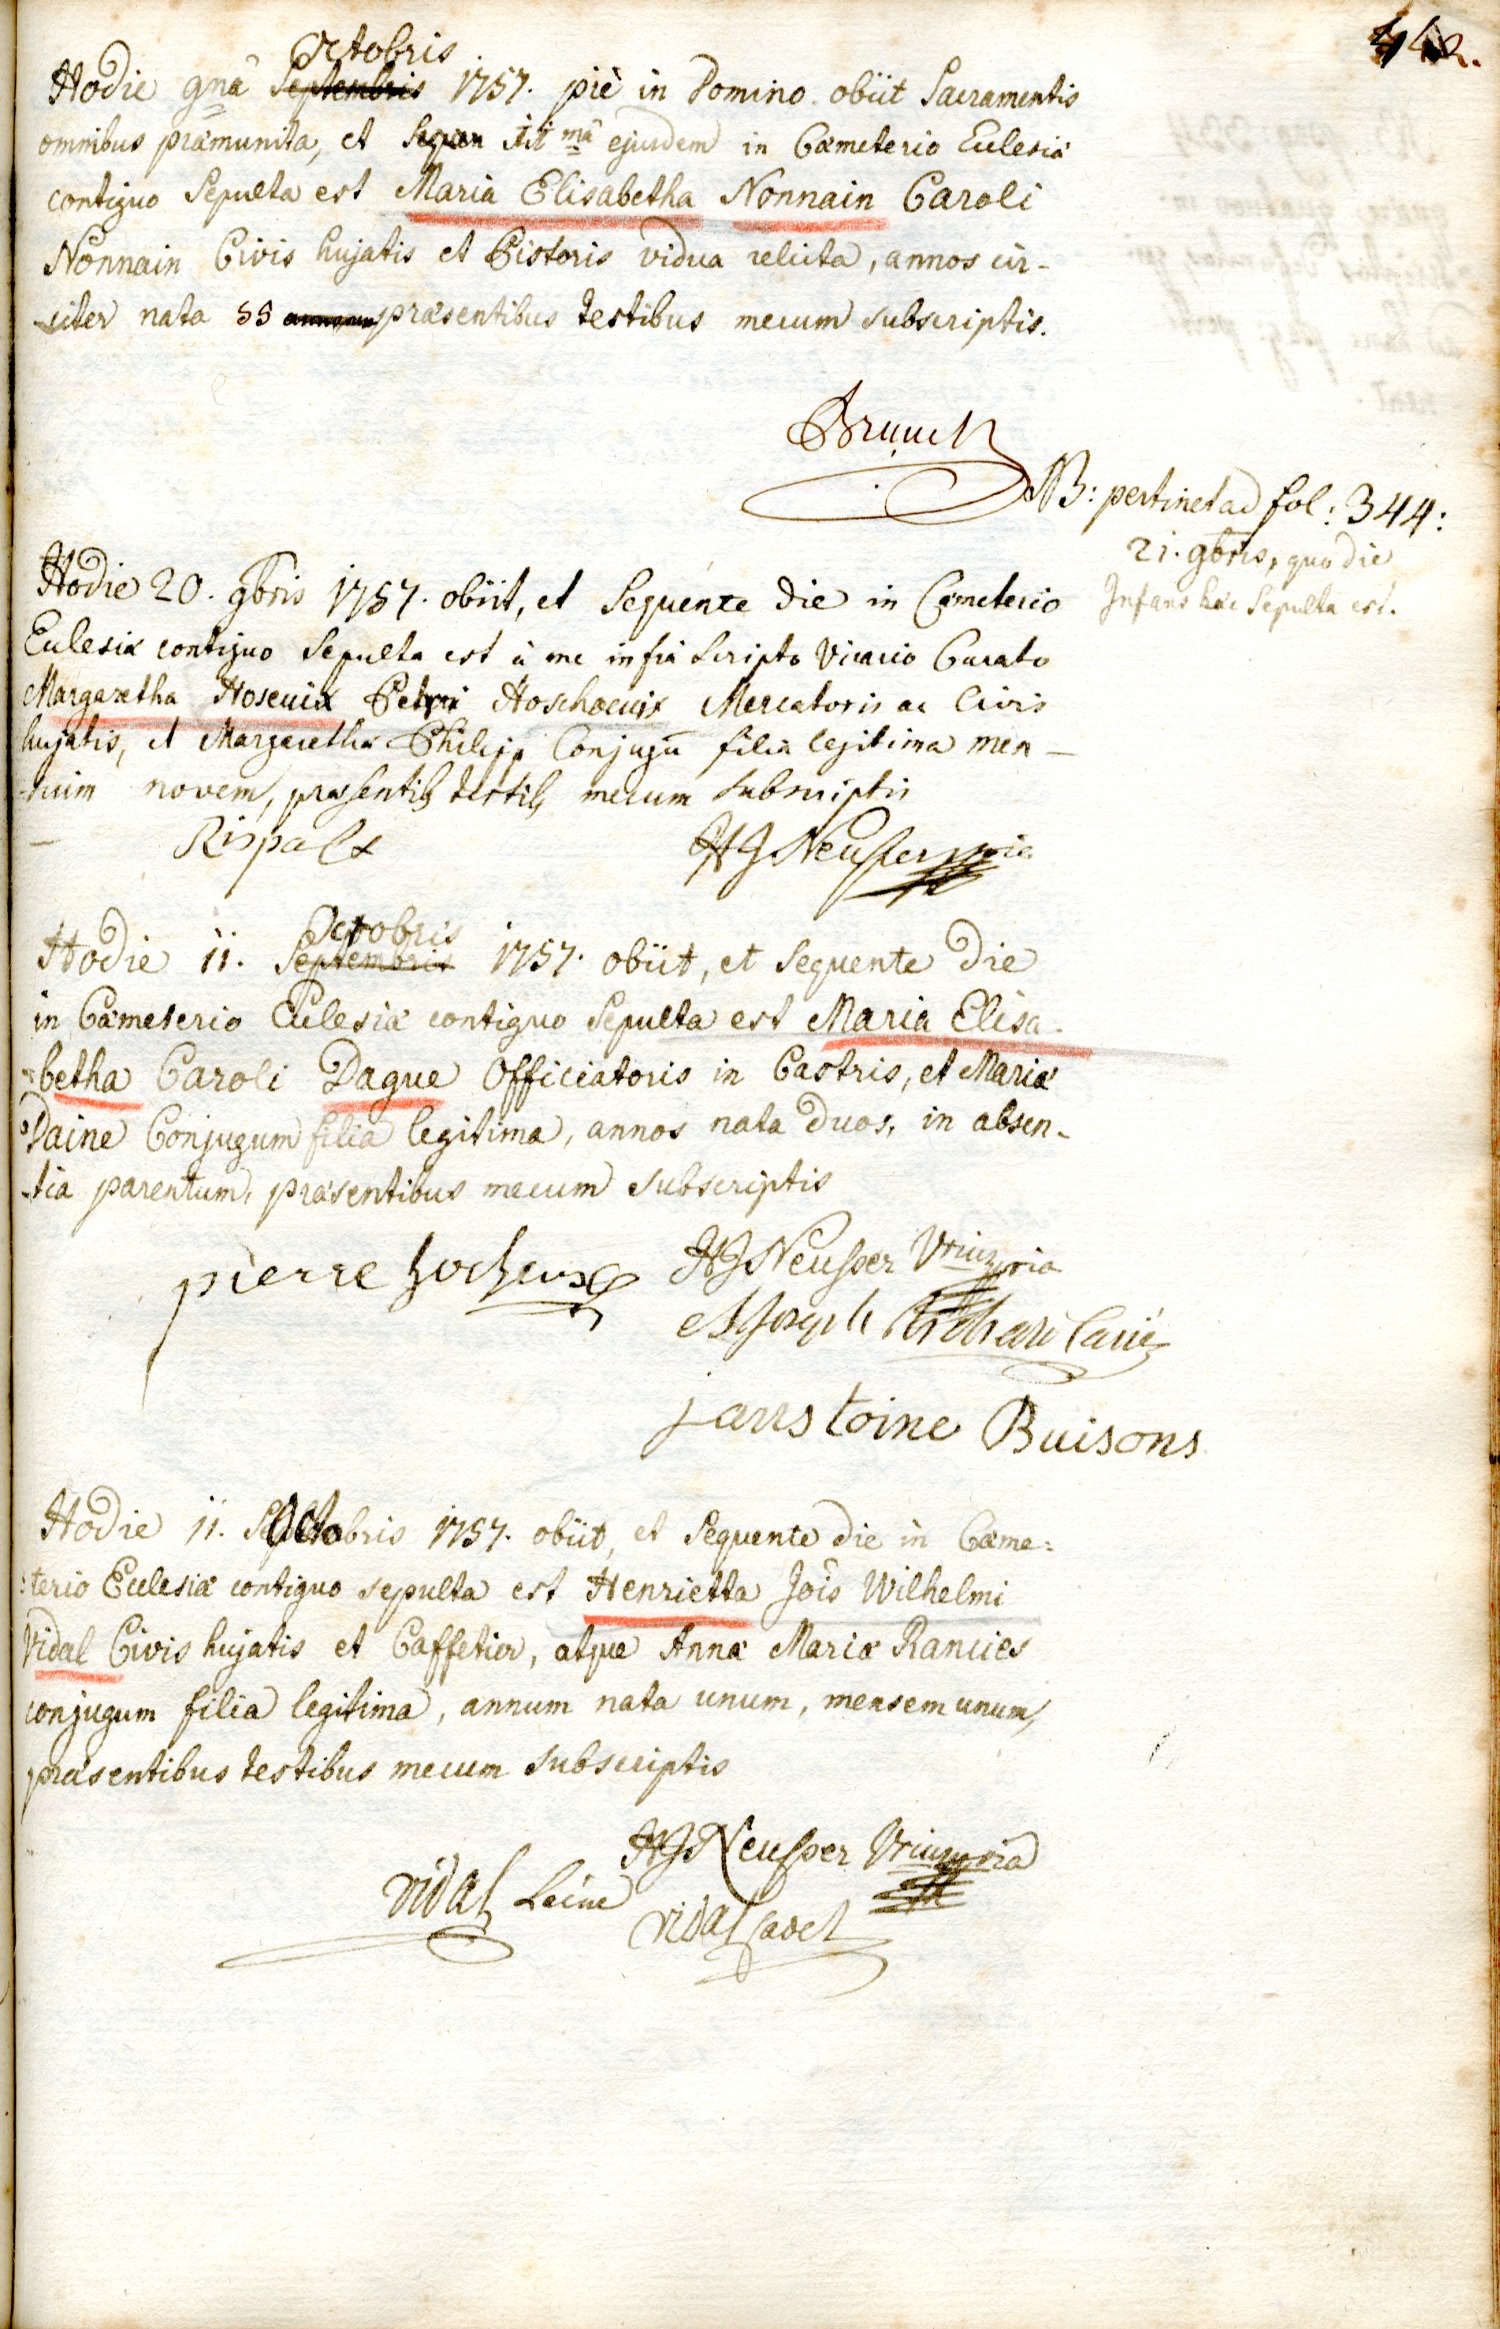 Octobris
Hodie 9nâ Septembris 1757. piè in Domino obiit Sacramentis
omnibus præmunita, et mâ ejusdem in Cæmeterio Eclesiæ
contiguo Sepulta est Maria Elisabetha Nonnain Caroli
Nonnain Civis hujatis et Pistoris vidua relicta, annos cir-
-citer nata 55 annorum præsentibus testibus mecum subscriptis.
NB: pertinet ad fol: 344:
21. 9bris, quo die
Infans hæc Sepulta est.
Hodie 20. 9bris 1757. obiit, et Sequente die in Cæmeterio
Eclesiæ contiguo Sepulta est à me infra scripto Vicario Curato
Margaretha Petri Mercatoris ac Civis
hujatis, et Margarethæ Philipp Conjugū filia legitima men-
-sium novem, præsentib testib mecum subscriptis
HJ Neusser
Octobris
Hodie 11. Septembris 1757. obiit, et Sequente Die
in Cæmeterio Eclesiæ contiguo Sepulta est Maria Elisa-
-betha Caroli Dague Officiatoris in Castris, et Mariæ
Daine Conjugum filia legitima, annos nata Duos, in absen-
-tia parentum, præsentibus mecum subscriptis
pierre
HJ Neusser
Joseph
Buisons
Hodie 11. Octobris 1757. obiit, et Sequente die in Cæme:
:terio Eclesiæ contiguo sepulta est Henrietta Jois Wilhelmi
Vidal Civis hujatis et Caffetier, atque Annæ Mariæ Rancies
conjugum filia legitima, annum nata unum, mensem unum,
præsentibus testibus mecum subscriptis
HJ Neusser
Vidal
Vidal Cadet